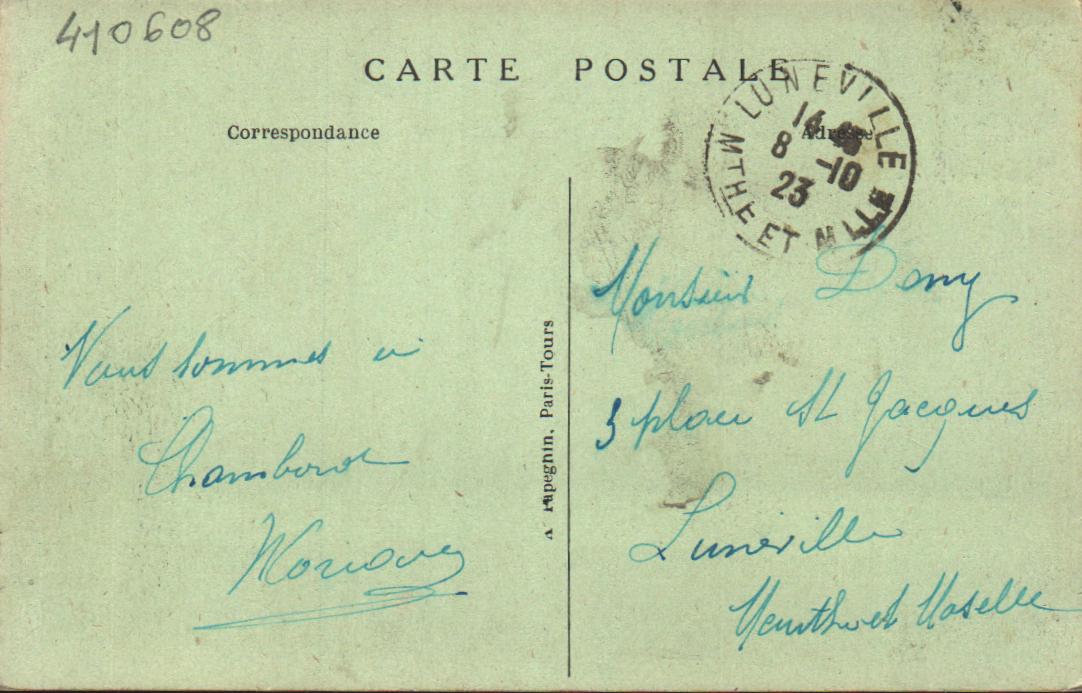 410608
CARTE POSTALE
Correspondance
Adresse
LUNEVILLE
14
8 -10
23
MTHE ET MLLE
Monsieur Demy
3 place St Jacques
Lunéville
Meurthe et Moselle
Nous sommes à
Chambord
A Papeghin, Paris-Tours